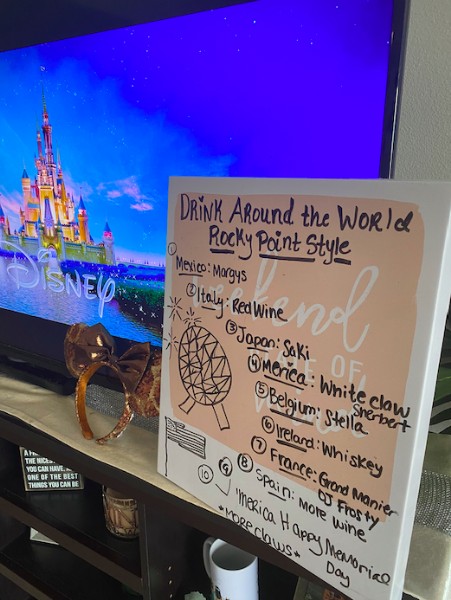 Disney
DRINK Around the WORLD
Rocky Point Style
① Mexico: Margys
② Italy: Red Wine
③ Japan: Saki
④ Merica: White claw
Sherbert
⑤ Belgium: Stella
⑥ Ireland: Whiskey
⑦ France: Grand Manier
OJ Frosty
⑧ Spain: more wine
⑨
⑩ 'merica Happy Memorial
Day
*more claws*
weekend
OF
THE NICES
YOU CAN HAVE,
ONE OF THE BEST
THINGS YOU CAN BE